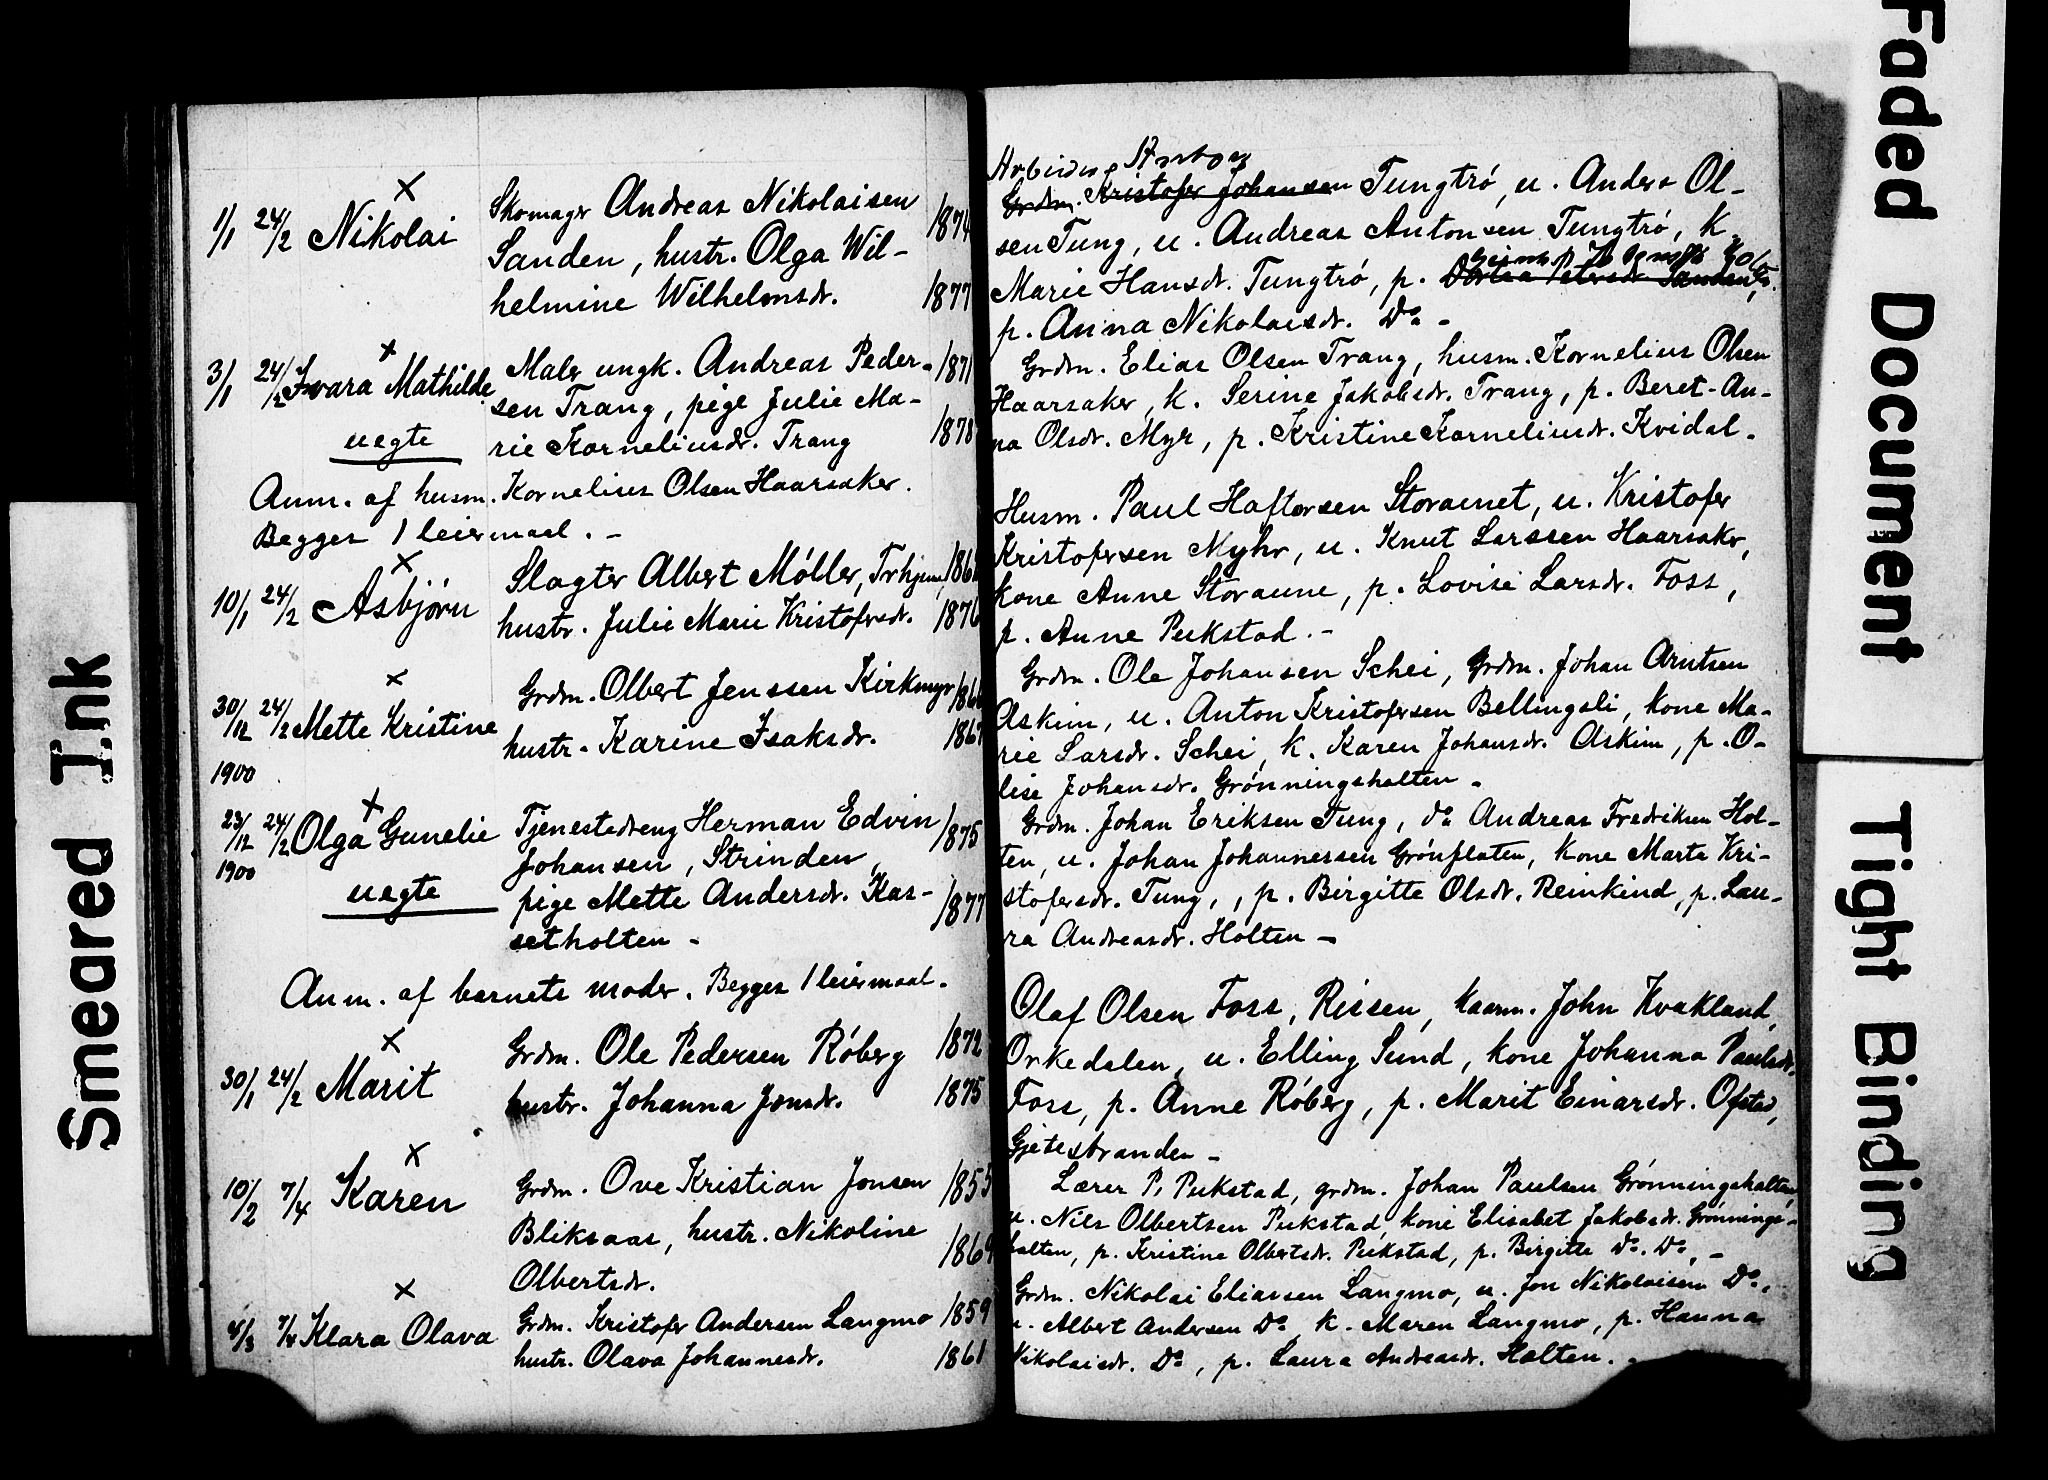 Smeared Ink
Faded Document
Tight Binding
1/1 24/2 Nikolai
Skomager Andreas Nikolaisen 1874
Sanden, hustr. Olga Wil-
helmine Wilhelmsdr. 1877
3/1 24/2 Ivara Mathilde
uegte
Maler ungk. Andreas Peder- 1871
sen Trang, pige Julie Ma-
rie Korneliusdr. Trang 1878
Anm. af husm. Kornelius Olsen Haarsaker.
Begges 1 leiermaal. -
10/1 24/2 Asbjørn
Slagter Albert Møller, Trhjem,
hustr. Julie Marie Kristofersdr. 1876
30/12 24/2 Mette Kristine
1900
Grdm. Olbert Jenssen Kirkmyr
hustr. Karine Isaksdr.
23/12 24/2 Olga Gunelie
1900
uegte
Tjenestedreng Herman Edvin 1875
Johansen, Strinden,
pige Mette Andersdr. Kas- 1877
setholten -
Anm. af barnets moder. Begges 1 leiermaal.
30/1 24/2 Marit
Grdm. Ole Pedersen Røberg 1872
hustr. Johanna Jonsdr. 1875
10/2 7/4 Karen
Grdm. Ove Kristian Jonsen 1855
Bliksaas, hustr. Nikoline 1869
Olbertsdr.
4/3 7/4 Klara Olava
Grdm. Kristofer Andersen Langmo 1859
hustr. Olava Johannesdr. 1861
Arbeider
Grdm. Kristofer Johansen Tungtrø, u. Anders Ol-
sen Tung, u. Andreas Antonsen Tungtrø, k.
Marie Hansdr. Tungtrø, p. Dortea Petersdr. Sanden,
p. Anna Nikolaisdr. Do. -
Grdm. Elias Olsen Trang, husm. Kornelius Olsen
Haarsaker, k. Serine Jakobsdr. Trang, p. Beret-An-
na Olsdr. Myr, p. Kristine Korneliusdr. Kvidal.
Husm. Paul Haftorsen Storaunet, u. Kristofer
Kristofersen Myhr, u. Knut Larssen Haarsaker,
kone Anne Storaune, p. Lovise Larsdr. Foss,
p. Anne Pukstad. -
Grdm. Ole Johansen Schei, Grdm. Johan Arntsen
Askim, u. Anton Kristofersen Bellingsli, kone Ma-
rie Larsdr. Schei, k. Karen Johansdr. Askim, p. O-
lise Johansdr. Grønningsholten -
Grdm. Johan Eriksen Tung, do. Andreas Fredriksen Hol-
ten, u. Johan Johannessen Grønflaten, kone Marta Kri-
stofersdr. Tung, , p. Birgitte Olsdr. Reinkind, p. Lau-
ra Andreasdr. Holten -
Olaf Olsen Foss, Rissen, kaarm. John Kvakland,
Orkedalen, u. Elling Sund, kone Johanna Paulsdr.
Foss, p. Anne Røberg, p. Marit Einarsdr. Ofstad,
Gjetestranden -
Lærer P. Pukstad, grdm. Johan Paulsen Grønningsholten,
u. Nils Olbertsen Pukstad, kone Elisabet Jakobsdr. Grønnings-
holten, p. Kristine Olbertsdr. Pukstad, p. Birgitte Do. Do., -
Grdm. Nikolai Eliassen Langmo, u. Jon Nikolaisen Do.,
u. Albert Andersen Do. k. Maren Langmo, p. Hanna
Nikolaisdr. Do., p. Laura Andreasdr. Holten. -